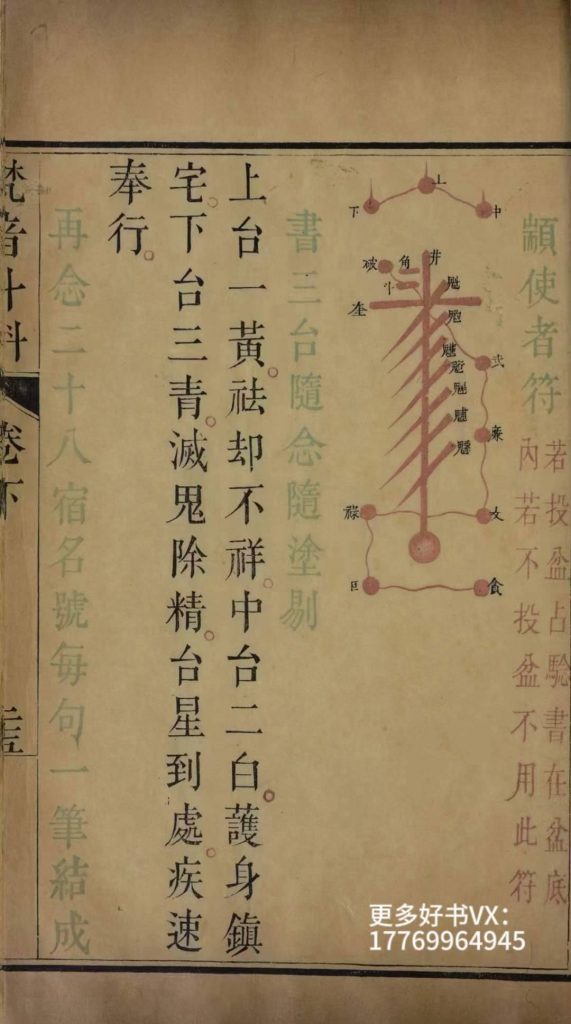 顓使者符
若投盆占驗書在盆底
內若不投盆不用此符
上
下
中
井
角
斗
破
魁
武
廉
文
祿
巨
貪
書三台隨念隨塗剔
上台一黃。祛却不祥。中台二白。䕶身鎮
宅。下台三青。滅鬼除精。台星到處。疾速
奉行。
再念二十八宿名號每句一筆結成
梵音斗科
卷下
二五
更多好书VX：
17769964945